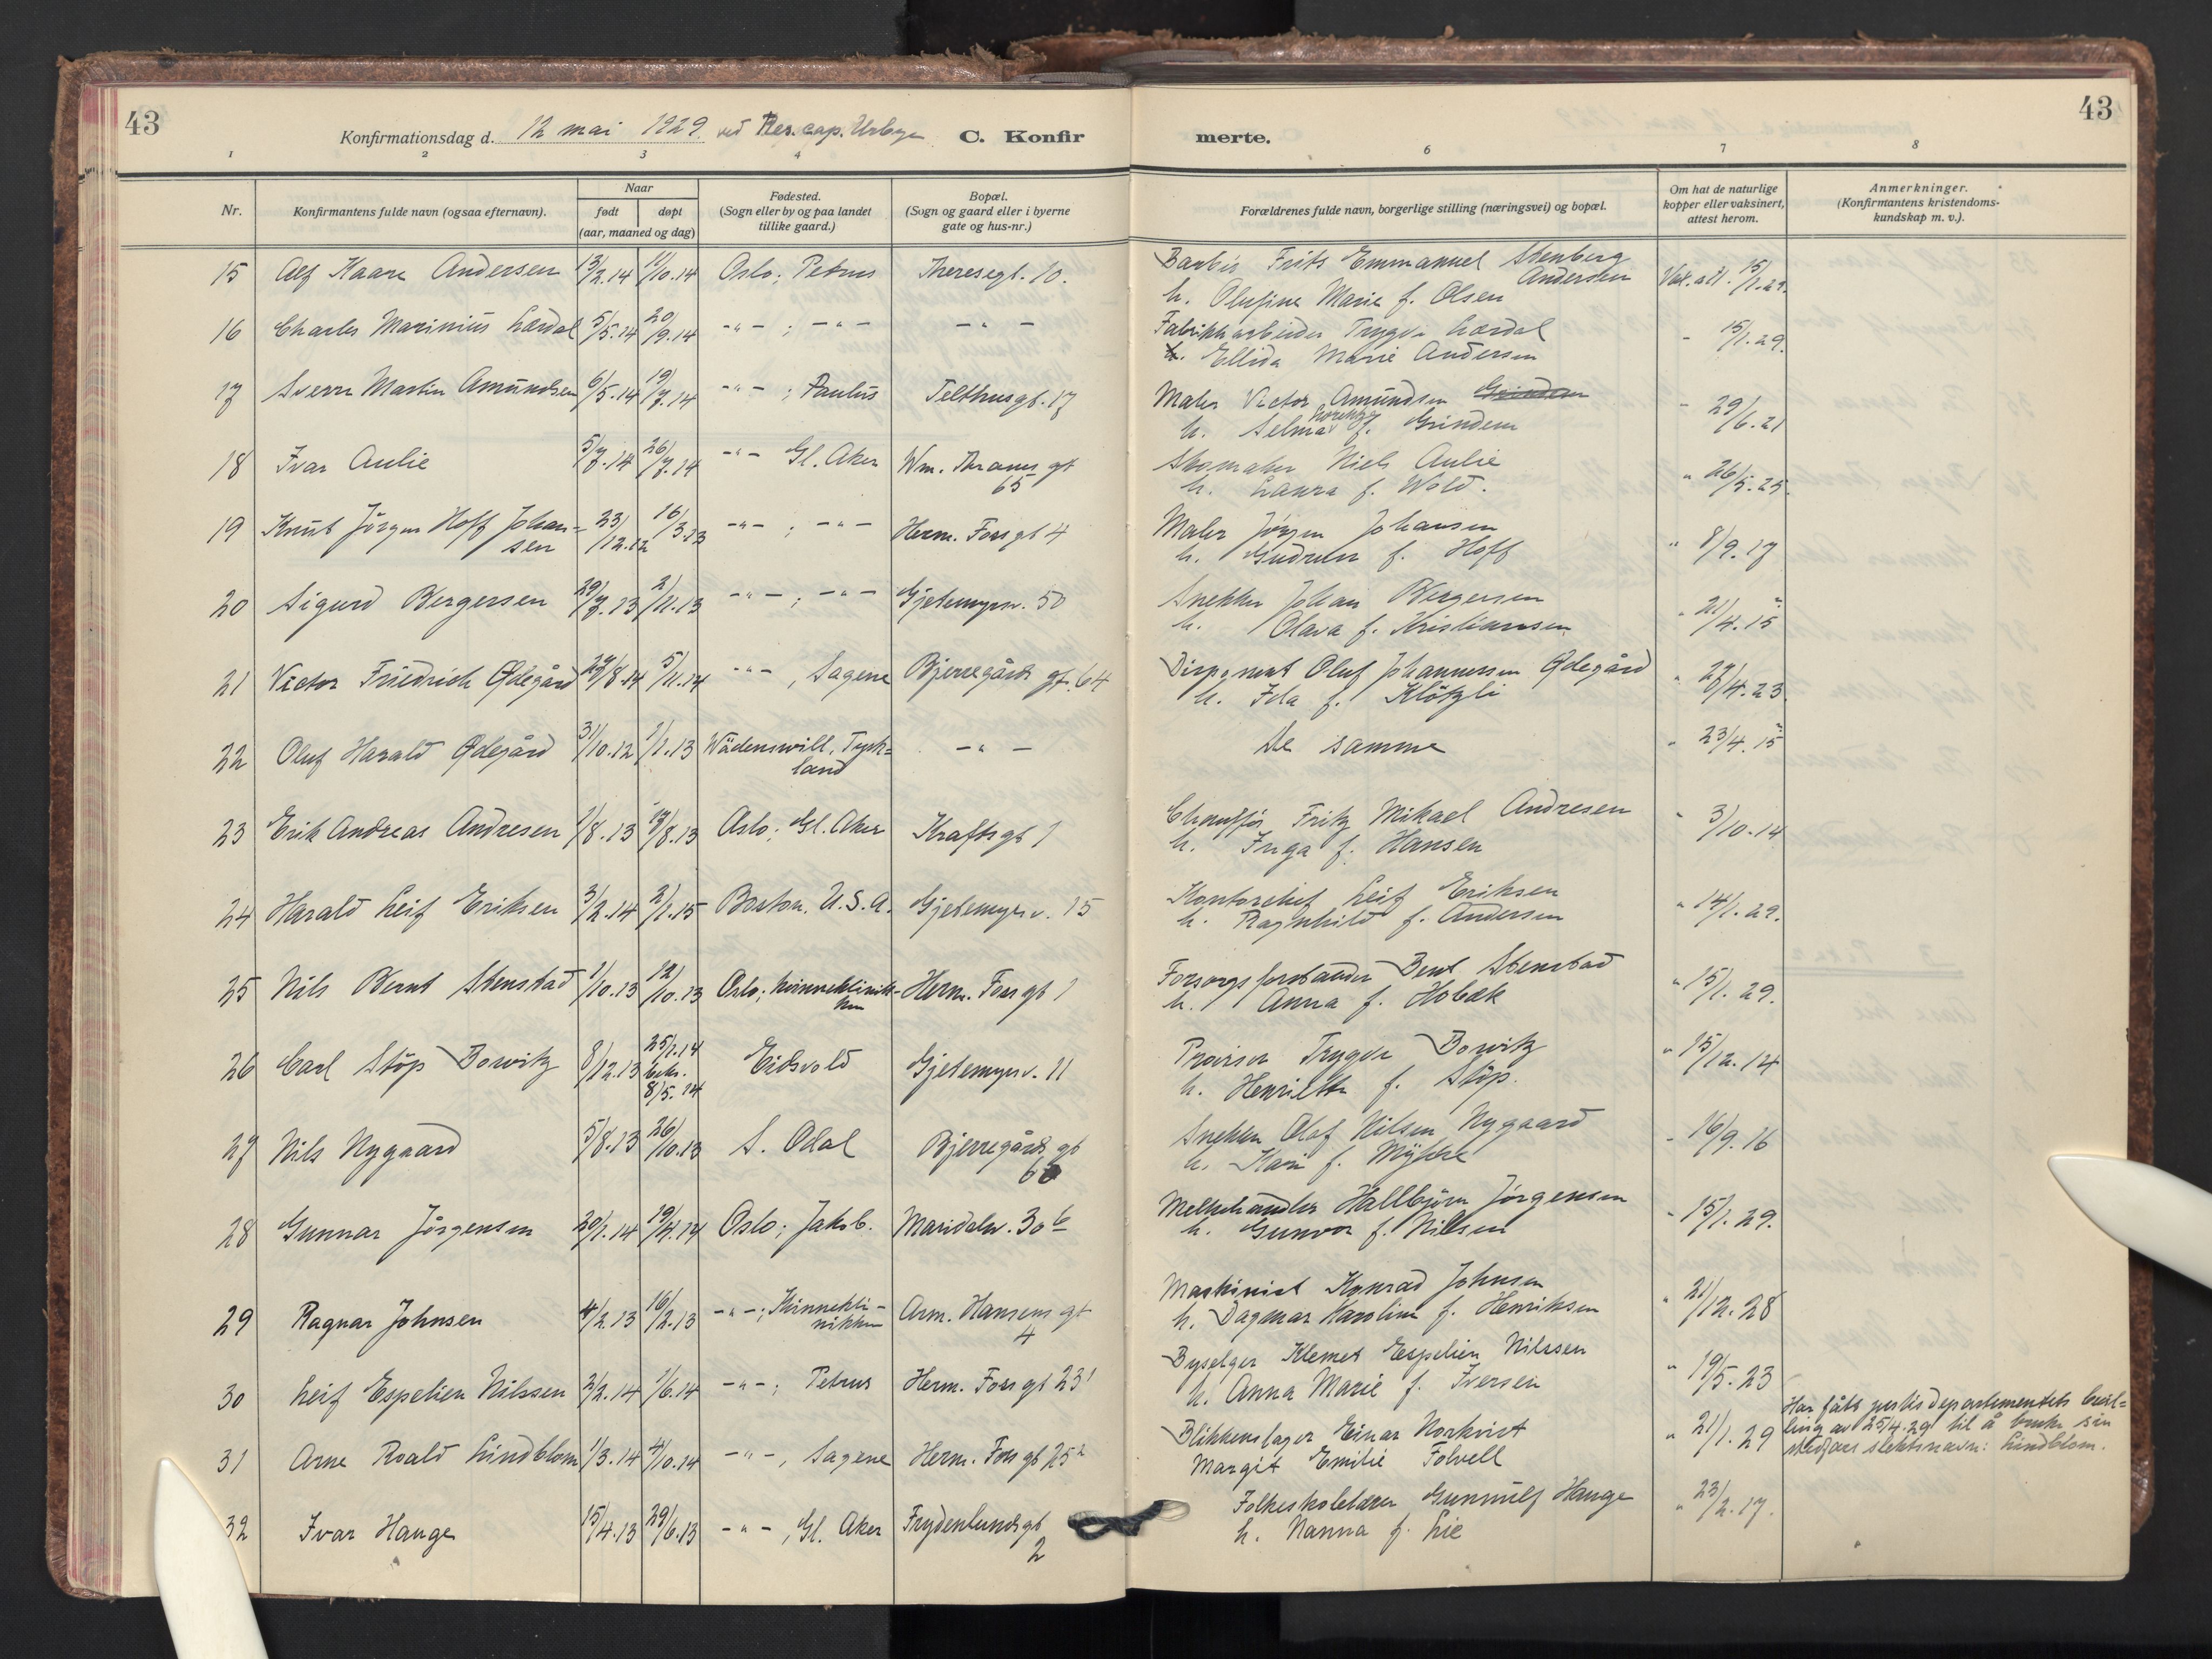 43
Konfirmationsdag d. 12 mai 1929. ved Res. cap. Urbye C. Konfirmerte.
43
1 2 3 4 6 7 8
Nr. Konfirmantens fulde navn (ogsaa efternavn). Naar født døpt (aar, maaned og dag) Fødested. (Sogn eller by og paa landet tillike gaard.) Bopæl. (Sogn og gaard eller i byerne gate og hus-nr.) Forældrenes fulde navn, borgerlige stilling (næringsvei) og bopæl. Om hat de naturlige kopper eller vaksinert, attest herom. Anmerkninger. (Konfirmantens kristendoms-kundskap m. v.).
15 Alf Kaare Andersen 13/2.14 11/10.14 Oslo; Petrus Theresegt. 10. Barbér Frits Emmanuel Stenberg Andersen Vak.att. 15/1.29.
h. Olufine Marie f. Olsen
16 Charles Marinius Lærdal 5/5.14 20/9.14 -"- ; -"- -"- Fabrikkarbeider Trygve Lærdal - 15/1.29.
h. Ellida Marie Andersen
17 Sverre Martin Amundsen 6/5.14 19/7.14 -"- ; Paulus Telthusgt. 17 Maler Victor Amundsen Grindem - 29/6.21
h. Selma f. Grindem
18 Ivar Aulie 5/7.14 26/7.14 -"- Gl. Aker Wm. Thranes gt 65 Skomaker Niels Aulie " 26/5.25.
h. Laura f. Wold.
19 Knut Jörgen Hoff Johan=sen 23/12.12 16/3.13 -"- ; -"- Herm. Foss gt 4 Maler Jörgen Johansen " 8/9.17
h. Gudrun f. Hoff
20 Sigurd Bergersen 29/7.13 2/11.13 -"- ; -"- Gjetemyrsv. 50 Snekker Johan Bergersen " 21/4.15
h. Olava f. Kristiansen
21 Victor Friedrich Ødegård 5/11.14 -"- , Sagene Bjerregårds gt. 64 Disponent Oluf Johannessen Ødegård " 27/4.23.
h. Ida f. Klötzli
22 Oluf Harald Ødegård 31/10.12 1/1.13 Wädenswill, Tysk=land -"- De samme " 23/4.15
23 Erik Andreas Andresen 1/8.13 17/8.13 Oslo; Gl. Aker Kraftsgt 1 Chaufför Fritz Mikael Andresen " 3/10.14
h. Inga f. Hansen
24 Harald Leif Eriksen 3/2.14 2/1.15 Boston. U.S.A. Gjetemyrsv. 15 Kontorchef Leif Eriksen " 14/1.29.
h. Ragnhild f. Andersen
25 Nils Bernt Stenstad 1/10.13 12/10.13 Oslo; kvinneklinik-ken Herm. Foss gt 1 Forsorgsforstander Bent Stenstad " 15/1.29.
h. Anna f. Hobæk
26 Carl Stöp Borwitz 8/12.13 25/1.14 bekr. 8/5.14 Eidsvold Gjetemyrsv. 11 Provisor Trygve Borwitz " 15/12.14
h. Henriette f. Stöp.
27 Nils Nygaard 5/8.13 26/10.13 S. Odal Bjerregårds gt Snekker Olaf Nilsen Nygaard - 16/9.16
h. Kari f.
28 Gunnar Jörgensen 20/1.14 19/4.14 Oslo; Jakob. Maridalsv. 30 b Melkehandler Hallbjörn Jörgensen - 15/1.29.
h. Gunvor f. Nilsen
29 Ragnar Johnsen 4/2.13 16/2.13 -"- ; Kvinnekli-nikken Arm. Hansens gt 4 Maskinist Konrad Johnsen " 21/12.28
h. Dagmar Karoline f. Henriksen
30 Leif Espelien Nilssen 2/2.14 1/6.14 -"- ; Petrus Herm. Foss gt 23 1 Byselger Klemet Espelien Nilssen " 19/5.23
h. Anna Marie f. Iversen
31 Arne Roald Lindblom 1/3.14 4/10.14 -"- , Sagene Herm. Foss gt 25 2 Blikkenslager Einar Norkvist " 21/1.29 Har fått justisdepartementets bevil=ling av 25/4.29 til å bruke sin stedfars slektsnavn: Lindblom.
Margit Emilie Folvell
32 Ivar Hauge 15/4.13 29/6.13 -"- , Gl. Aker Frydenlundsgt 2 Folkeskolelærer Gunnulf Hauge " 23/2.17.
h. Nanna f. Lie